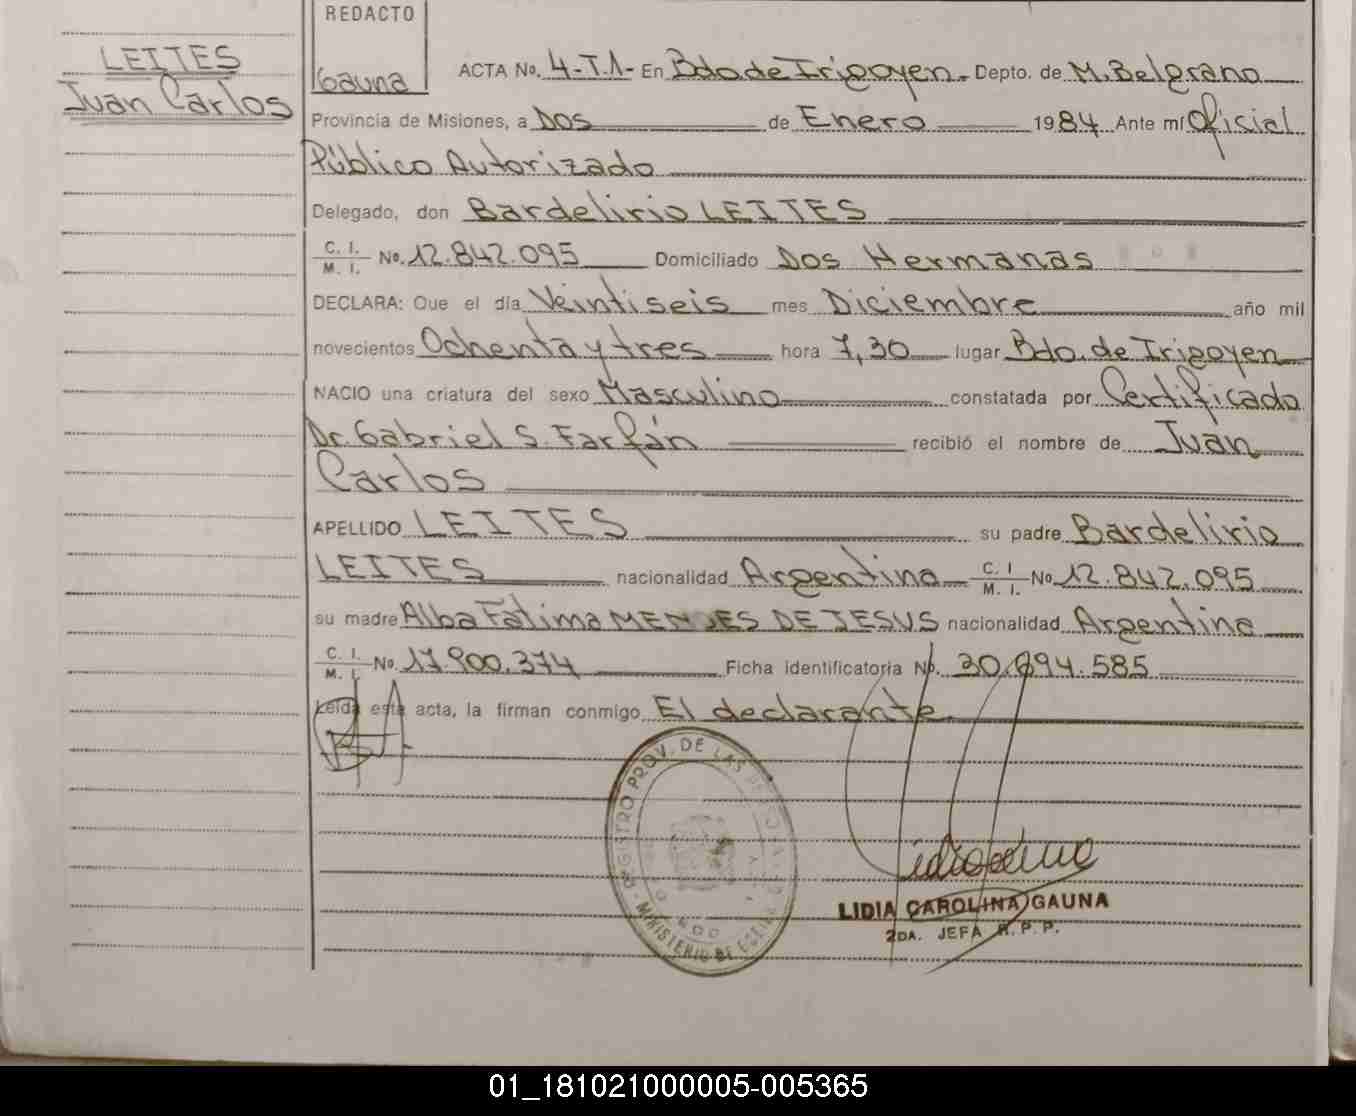 REDACTO
LEITES
Juan Carlos
Gauna
ACTA No. 4-T.1- En Bdo de Irigoyen. Depto. de M. Belgrano
Provincia de Misiones, a Dos de Enero 1984 Ante mí Oficial
Público Autorizado
Delegado, don Bardelirio LEITES
C. I. / M. I. No. 12.842.095 Domiciliado Dos Hermanas
DECLARA: Que el día Veintiseis mes Diciembre año mil
novecientos Ochenta y tres hora 7,30 lugar Bdo. de Irigoyen
NACIO una criatura del sexo Masculino constatada por Certificado
Dr. Gabriel S. Farfán recibió el nombre de Juan
Carlos
APELLIDO LEITES su padre Bardelirio
LEITES nacionalidad Argentina C. I / M. I. No. 12.842.095
su madre Alba Fátima MENDES DE JESUS nacionalidad Argentina
C. I. / M. I. No. 17.900.374 Ficha identificatoria No. 30.694.585
Leída esta acta, la firman conmigo El declarante.
REGISTRO PROV. DE LAS
MINISTERIO DE
LIDIA CAROLINA GAUNA
2DA. JEFA R.P.P.
01_181021000005-005365